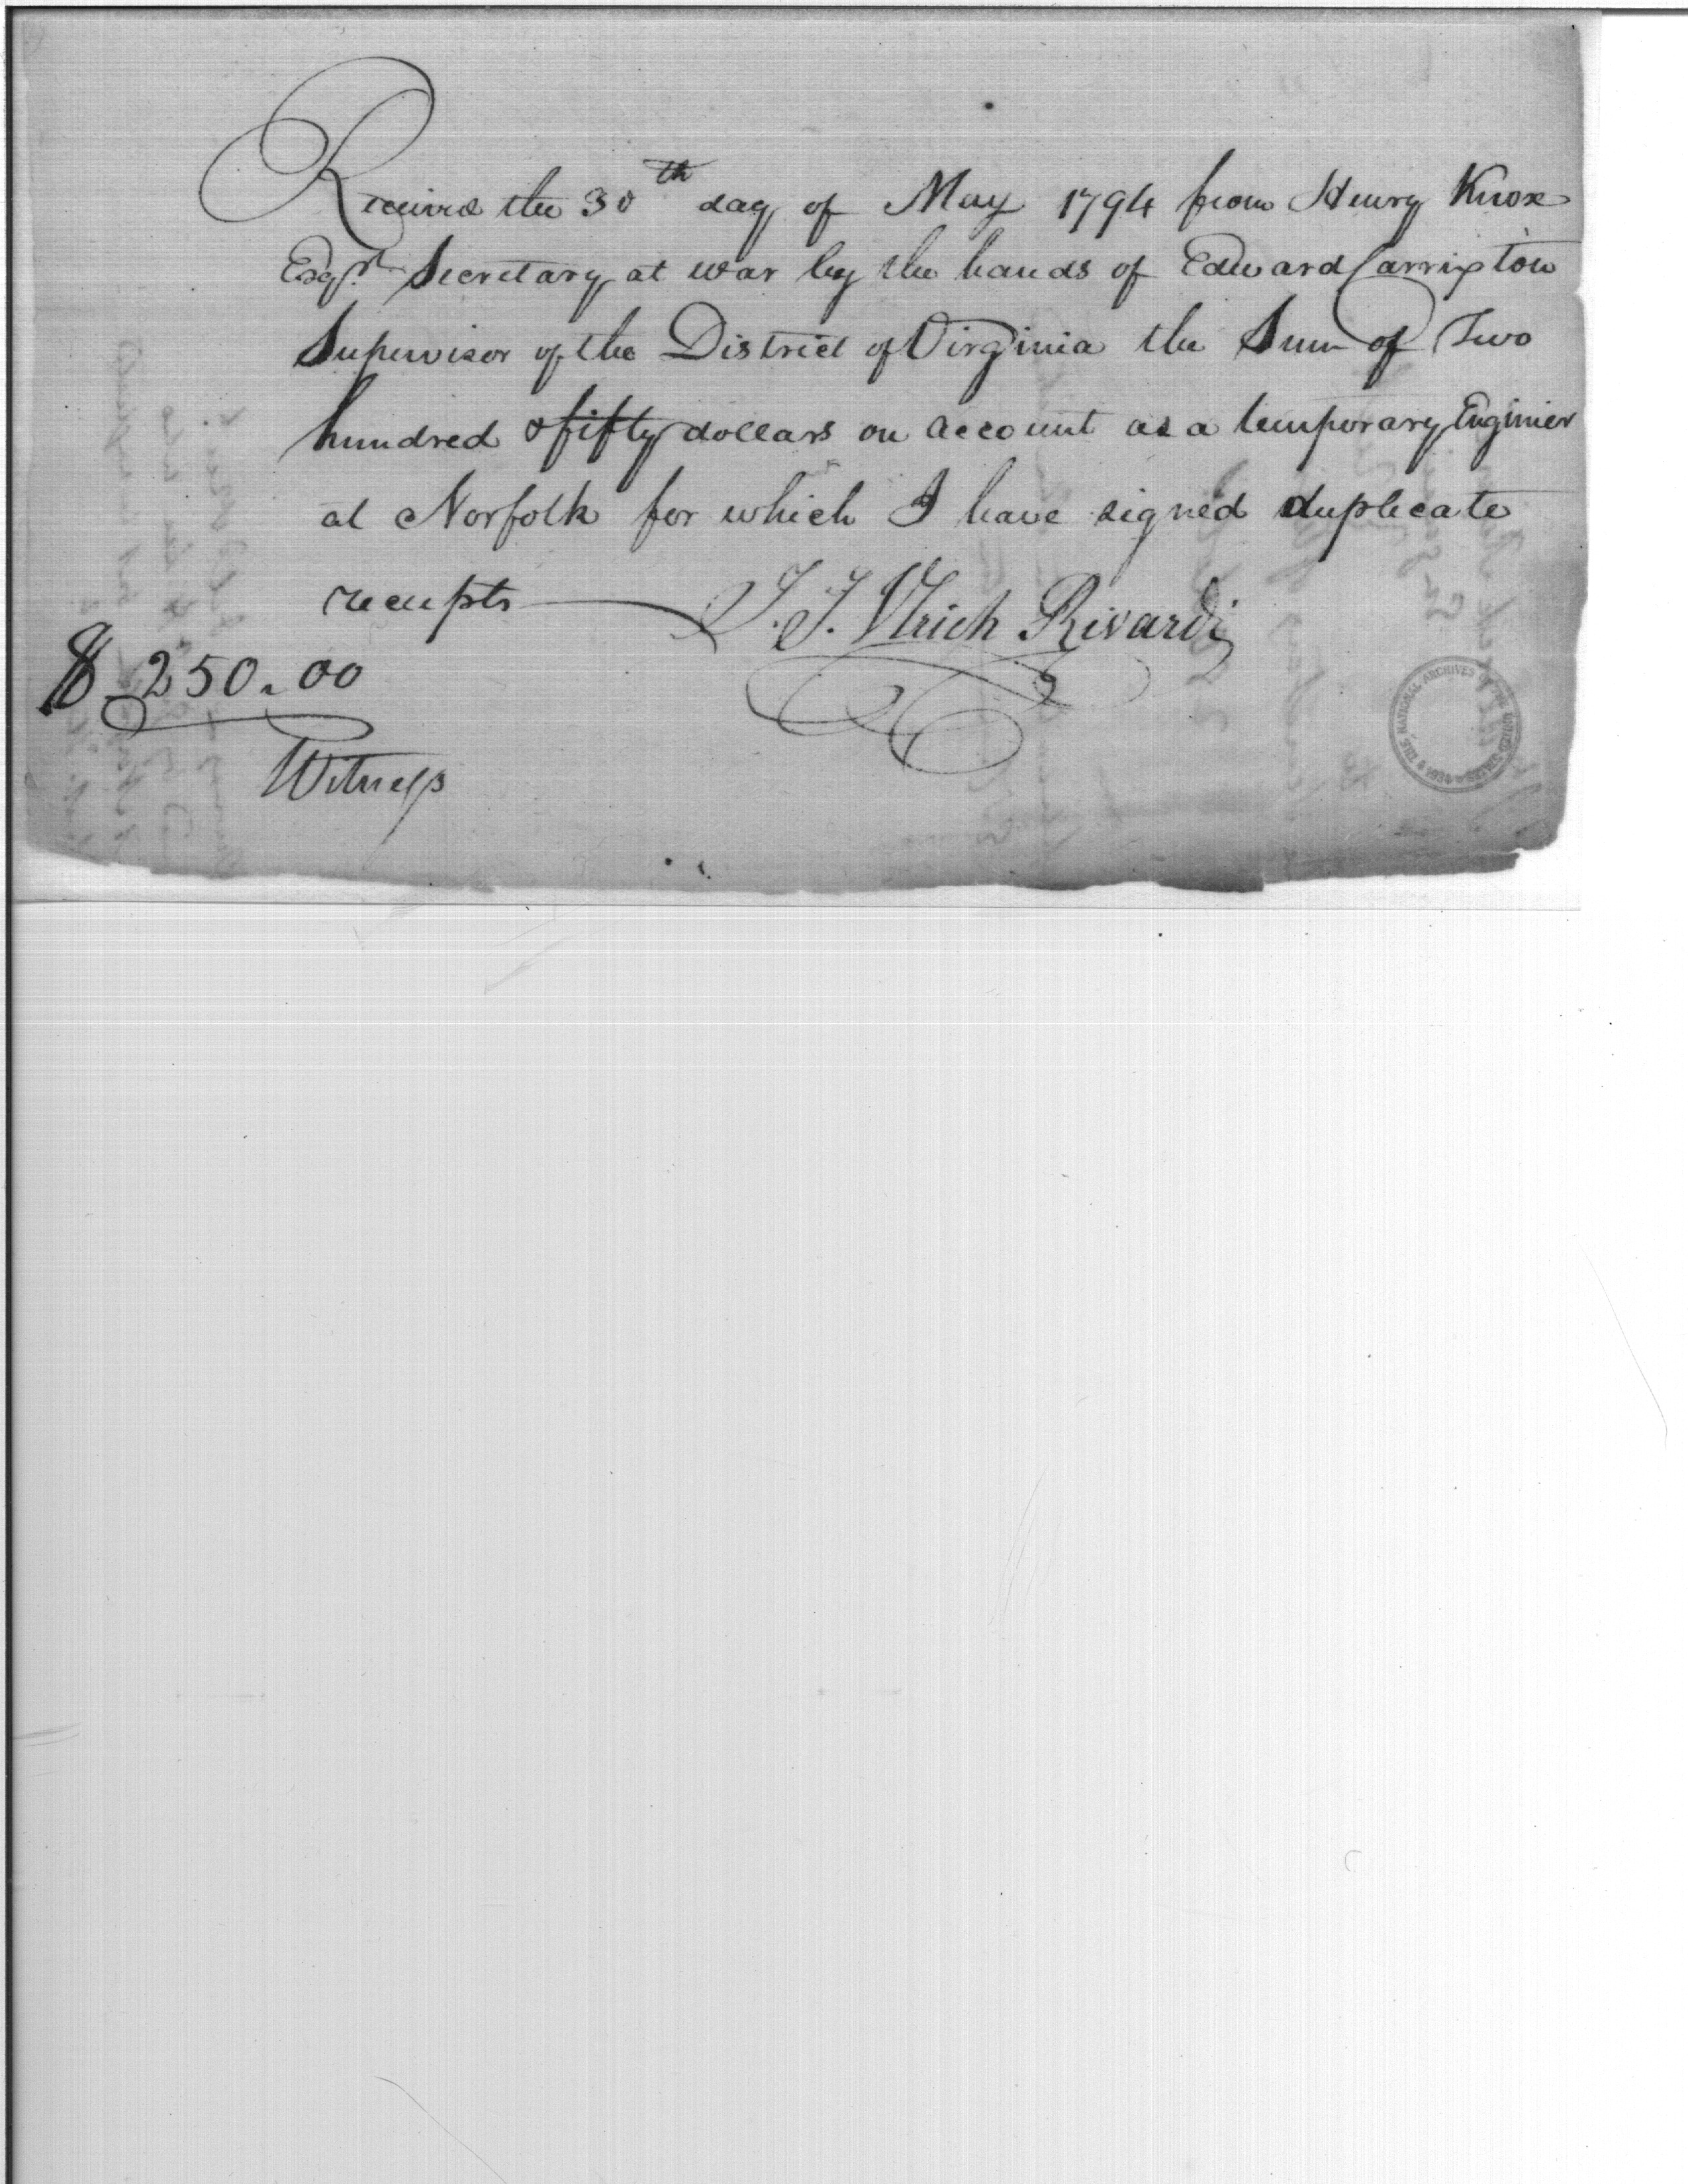 Received the 30th day of May 1794 from Henry Knox
Esqr. Secretary at war by the hands of Edward Carrington
Supervisor of the District of Virginia the Sum of Two
hundred & fifty dollars on account as a temporary Enginier
at Norfolk for which I have signed duplicate
receipts J. J. Ulrich Rivardi
$ 250.00
Witness
THE NATIONAL ARCHIVES OF THE UNITED STATES